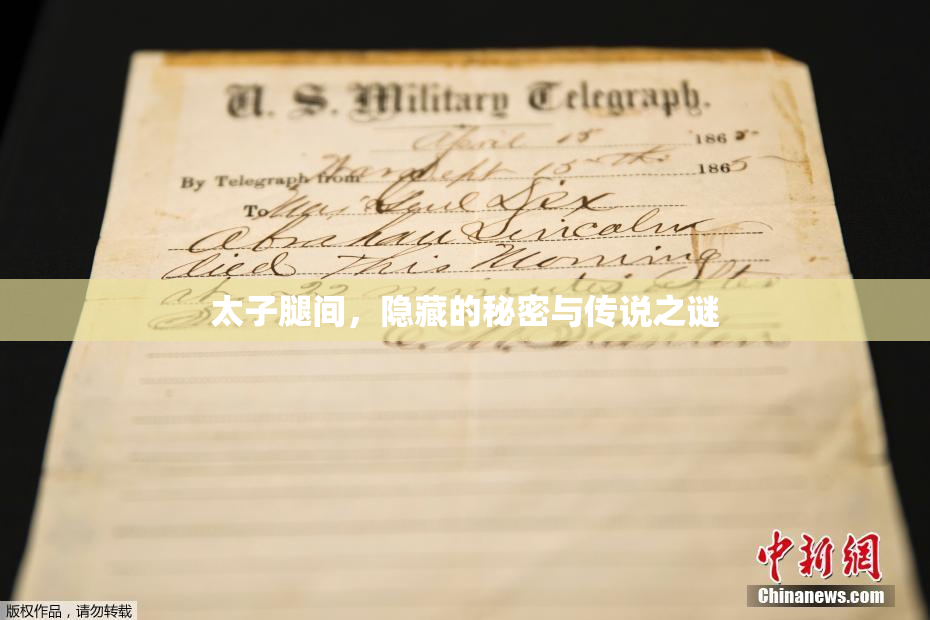 U. S. Military Telegraph.
April 15 1865
By Telegraph from War Dept 15th 1865
To Maj Genl Dix
Abraham Lincoln
died This Morning
at 22 minutes after
太子腿间，隐藏的秘密与传说之谜
E. M. Stanton
中新网
Chinanews.com
版权作品，请勿转载